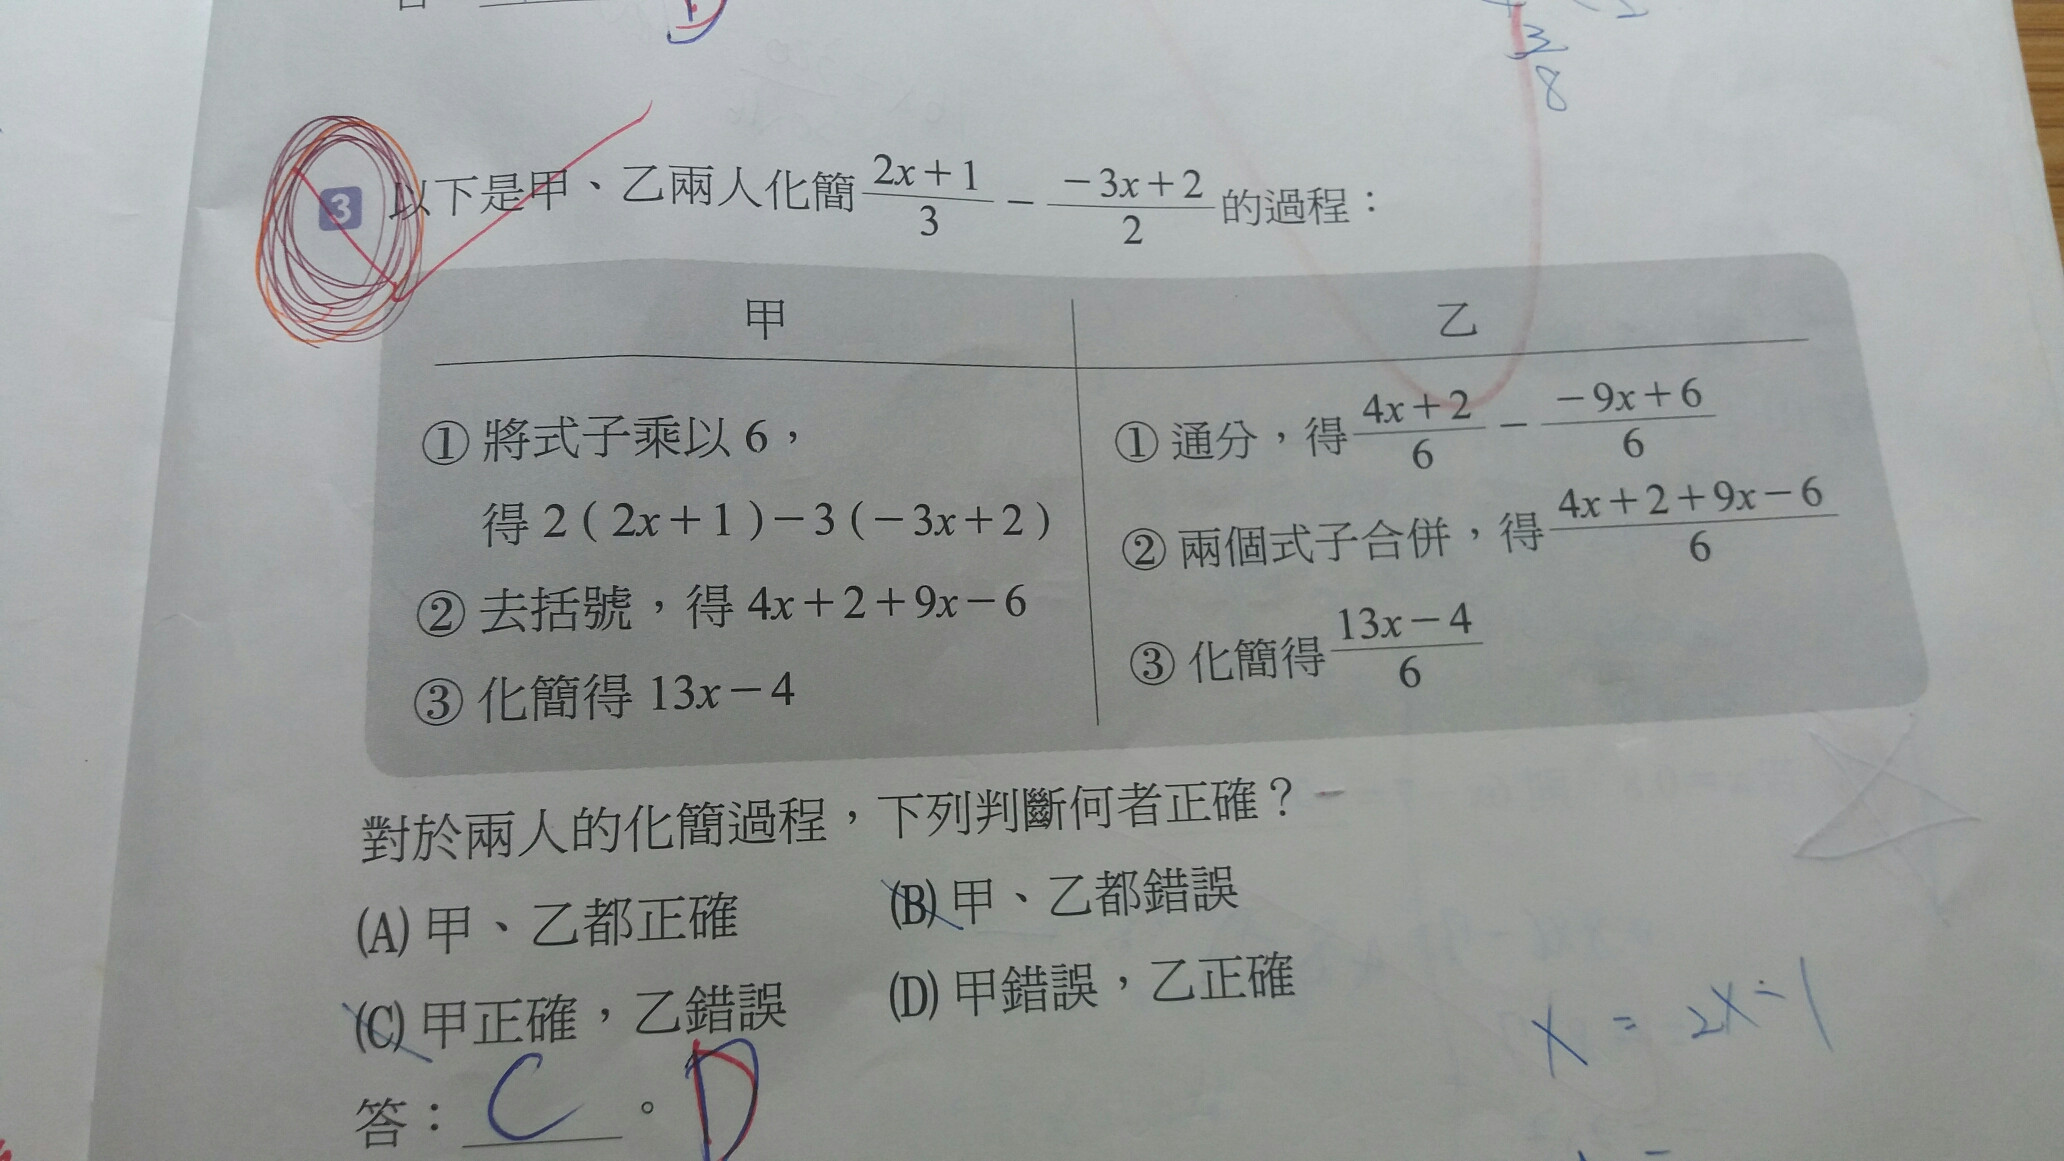 3/8
3 以下是甲、乙兩人化簡 (2x+1)/3 − (−3x+2)/2 的過程：
甲
乙
① 將式子乘以 6，
得 2(2x+1)−3(−3x+2)
② 去括號，得 4x+2+9x−6
③ 化簡得 13x−4
① 通分，得 (4x+2)/6 − (−9x+6)/6
② 兩個式子合併，得 (4x+2+9x−6)/6
③ 化簡得 (13x−4)/6
對於兩人的化簡過程，下列判斷何者正確？
(A) 甲、乙都正確 (B) 甲、乙都錯誤
(C) 甲正確，乙錯誤 (D) 甲錯誤，乙正確
x = 2x−1
答：C。D